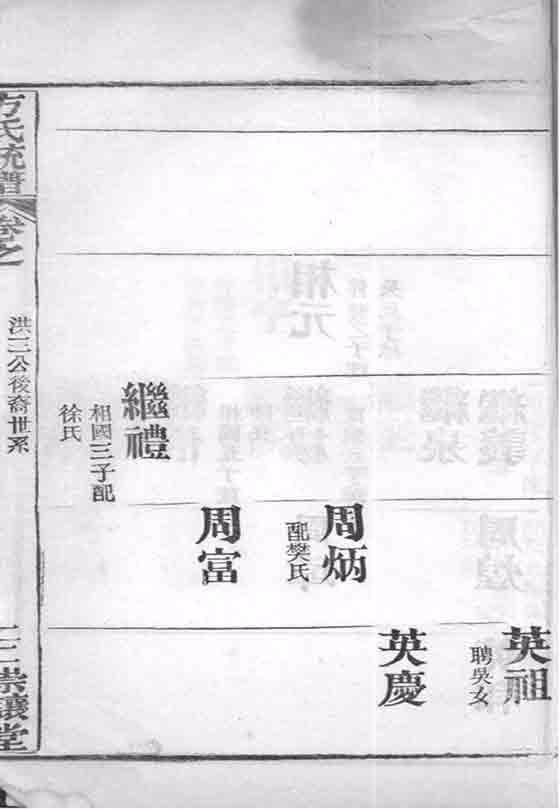 英祖
聘吳女
英慶
周炳
配樊氏
周富
繼禮
相國三子配
徐氏
方氏統譜
卷之
洪三公後裔世系
崇讓堂